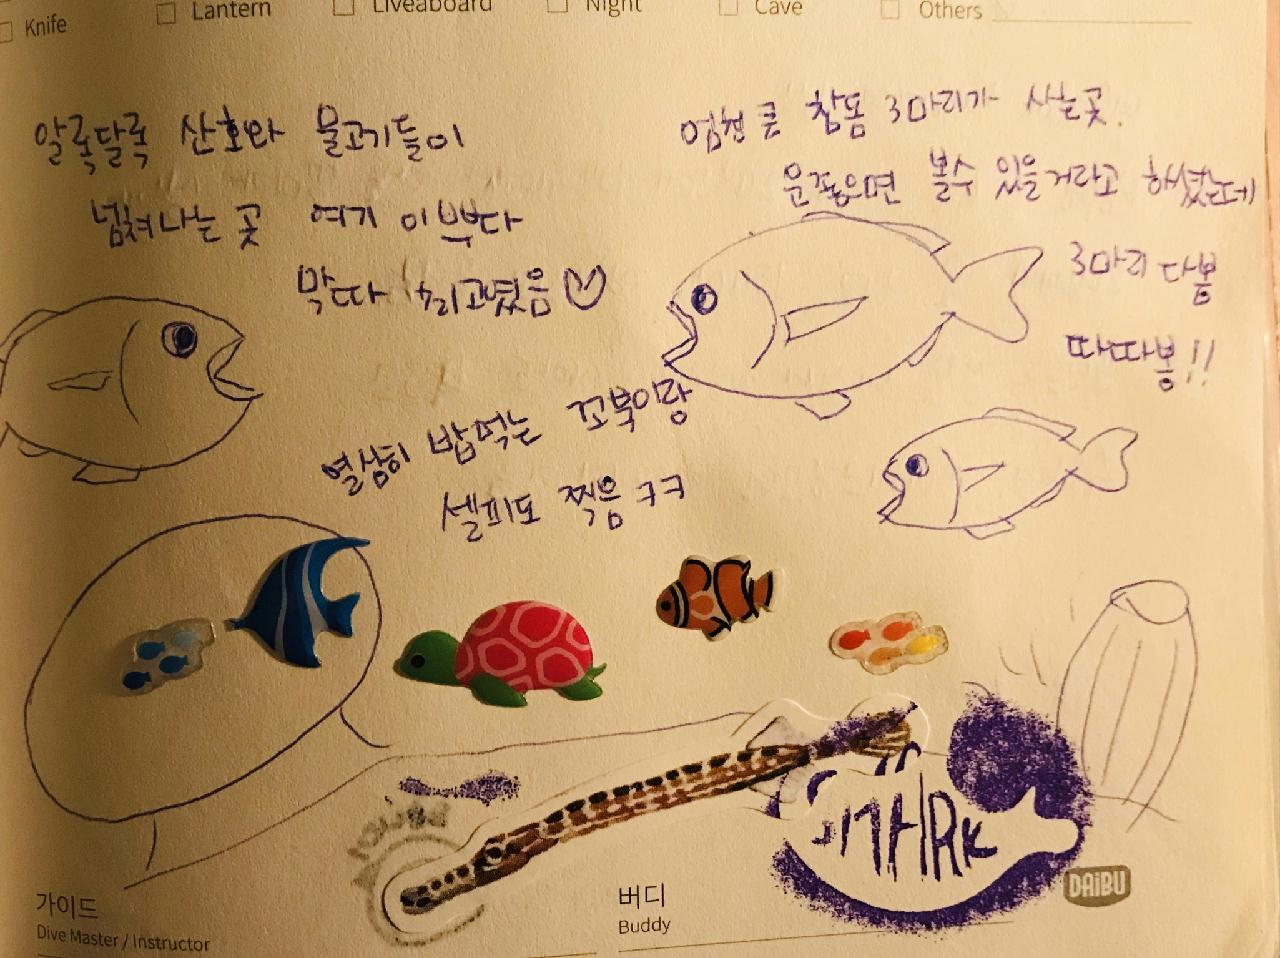 Knife
Lantern
Liveaboard
Night
Cave
Others
알록달록 산호와 물고기들이
넘쳐나는 곳 여기 이쁘다
막따 누리고였음
엄청 큰 참돔 3마리가 사는곳.
운좋으면 볼수 있을거라고 하셨는데
3마리 다봄
따따봉!!
열심히 밥먹는 꼬북이랑
셀피도 찍음 ㅋㅋ
가이드
Dive Master / Instructor
버디
Buddy
DAiBU